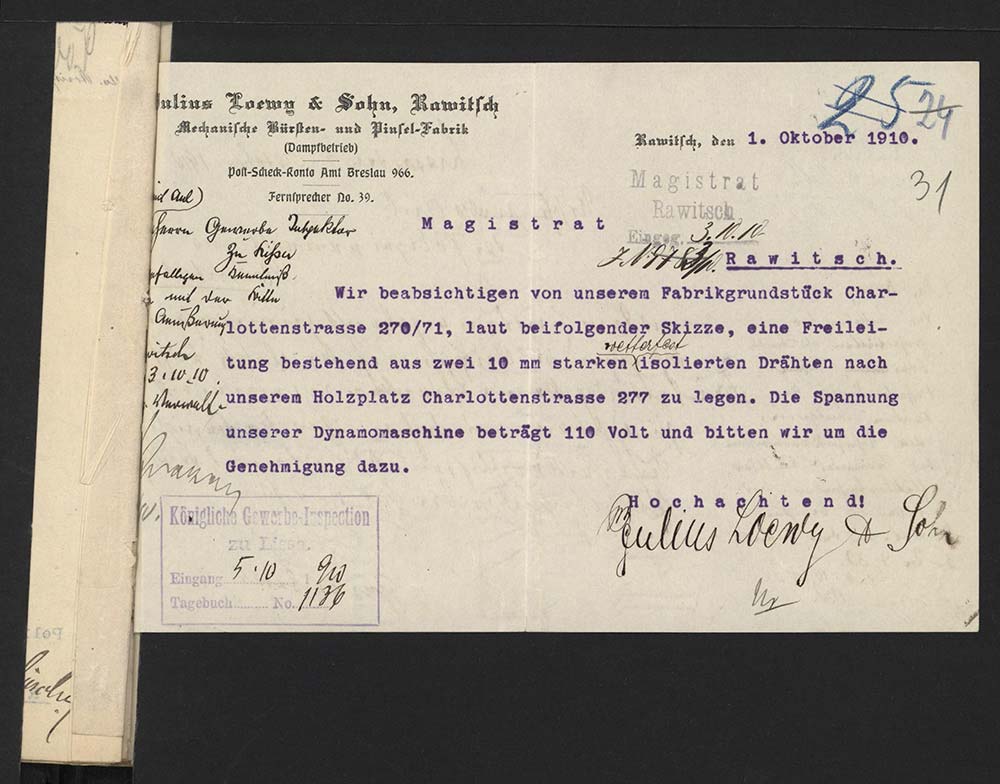 Julius Loewy & Sohn, Rawitsch
Mechanische Bürsten- und Pinsel-Fabrik
(Dampfbetrieb)
Post-Scheck-Konto Amt Breslau 966.
Fernsprecher No. 39.
25 24
Rawitsch, den 1. Oktober 1910.
31
Magistrat
Rawitsch
Eingeg. 3.10.10
Magistrat
Rawitsch.
Herrn Gewerbe Inspektor
zu Lissa
gefälligen Kenntniß
mit der Bitte
Äußerung
3.10.10
Wir beabsichtigen von unserem Fabrikgrundstück Char-
lottenstrasse 270/71, laut beifolgender Skizze, eine Freilei-
wetterfest
tung bestehend aus zwei 10 mm starken isolierten Drähten nach
unserem Holzplatz Charlottenstrasse 277 zu legen. Die Spannung
unserer Dynamomaschine beträgt 110 Volt und bitten wir um die
Genehmigung dazu.
Hochachtend!
Julius Loewy & Sohn
Königliche Gewerbe-Inspection
zu Lissa.
Eingang 5.10 1910
Tagebuch No. 1136